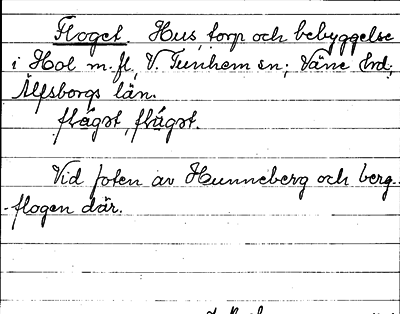 Floget. Hus, torp och bebyggelse
i Hol m.fl, V. Tunhem sn; Väne hd;
Älfsborgs län.
flágət, flågət.
Vid foten av Hunneberg och berg-
-flogen där.